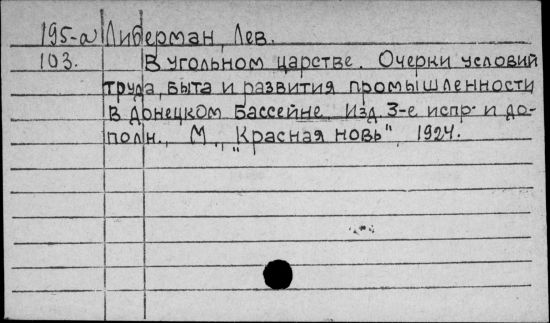 195-а Либерман, Лев.
103. В угольном царстве. Очерки условий
труда, быта и развития промышленности
в Донецком Бассейне. Изд. 3-е испр. и до-
полн., М., „Красная новь", 1924.